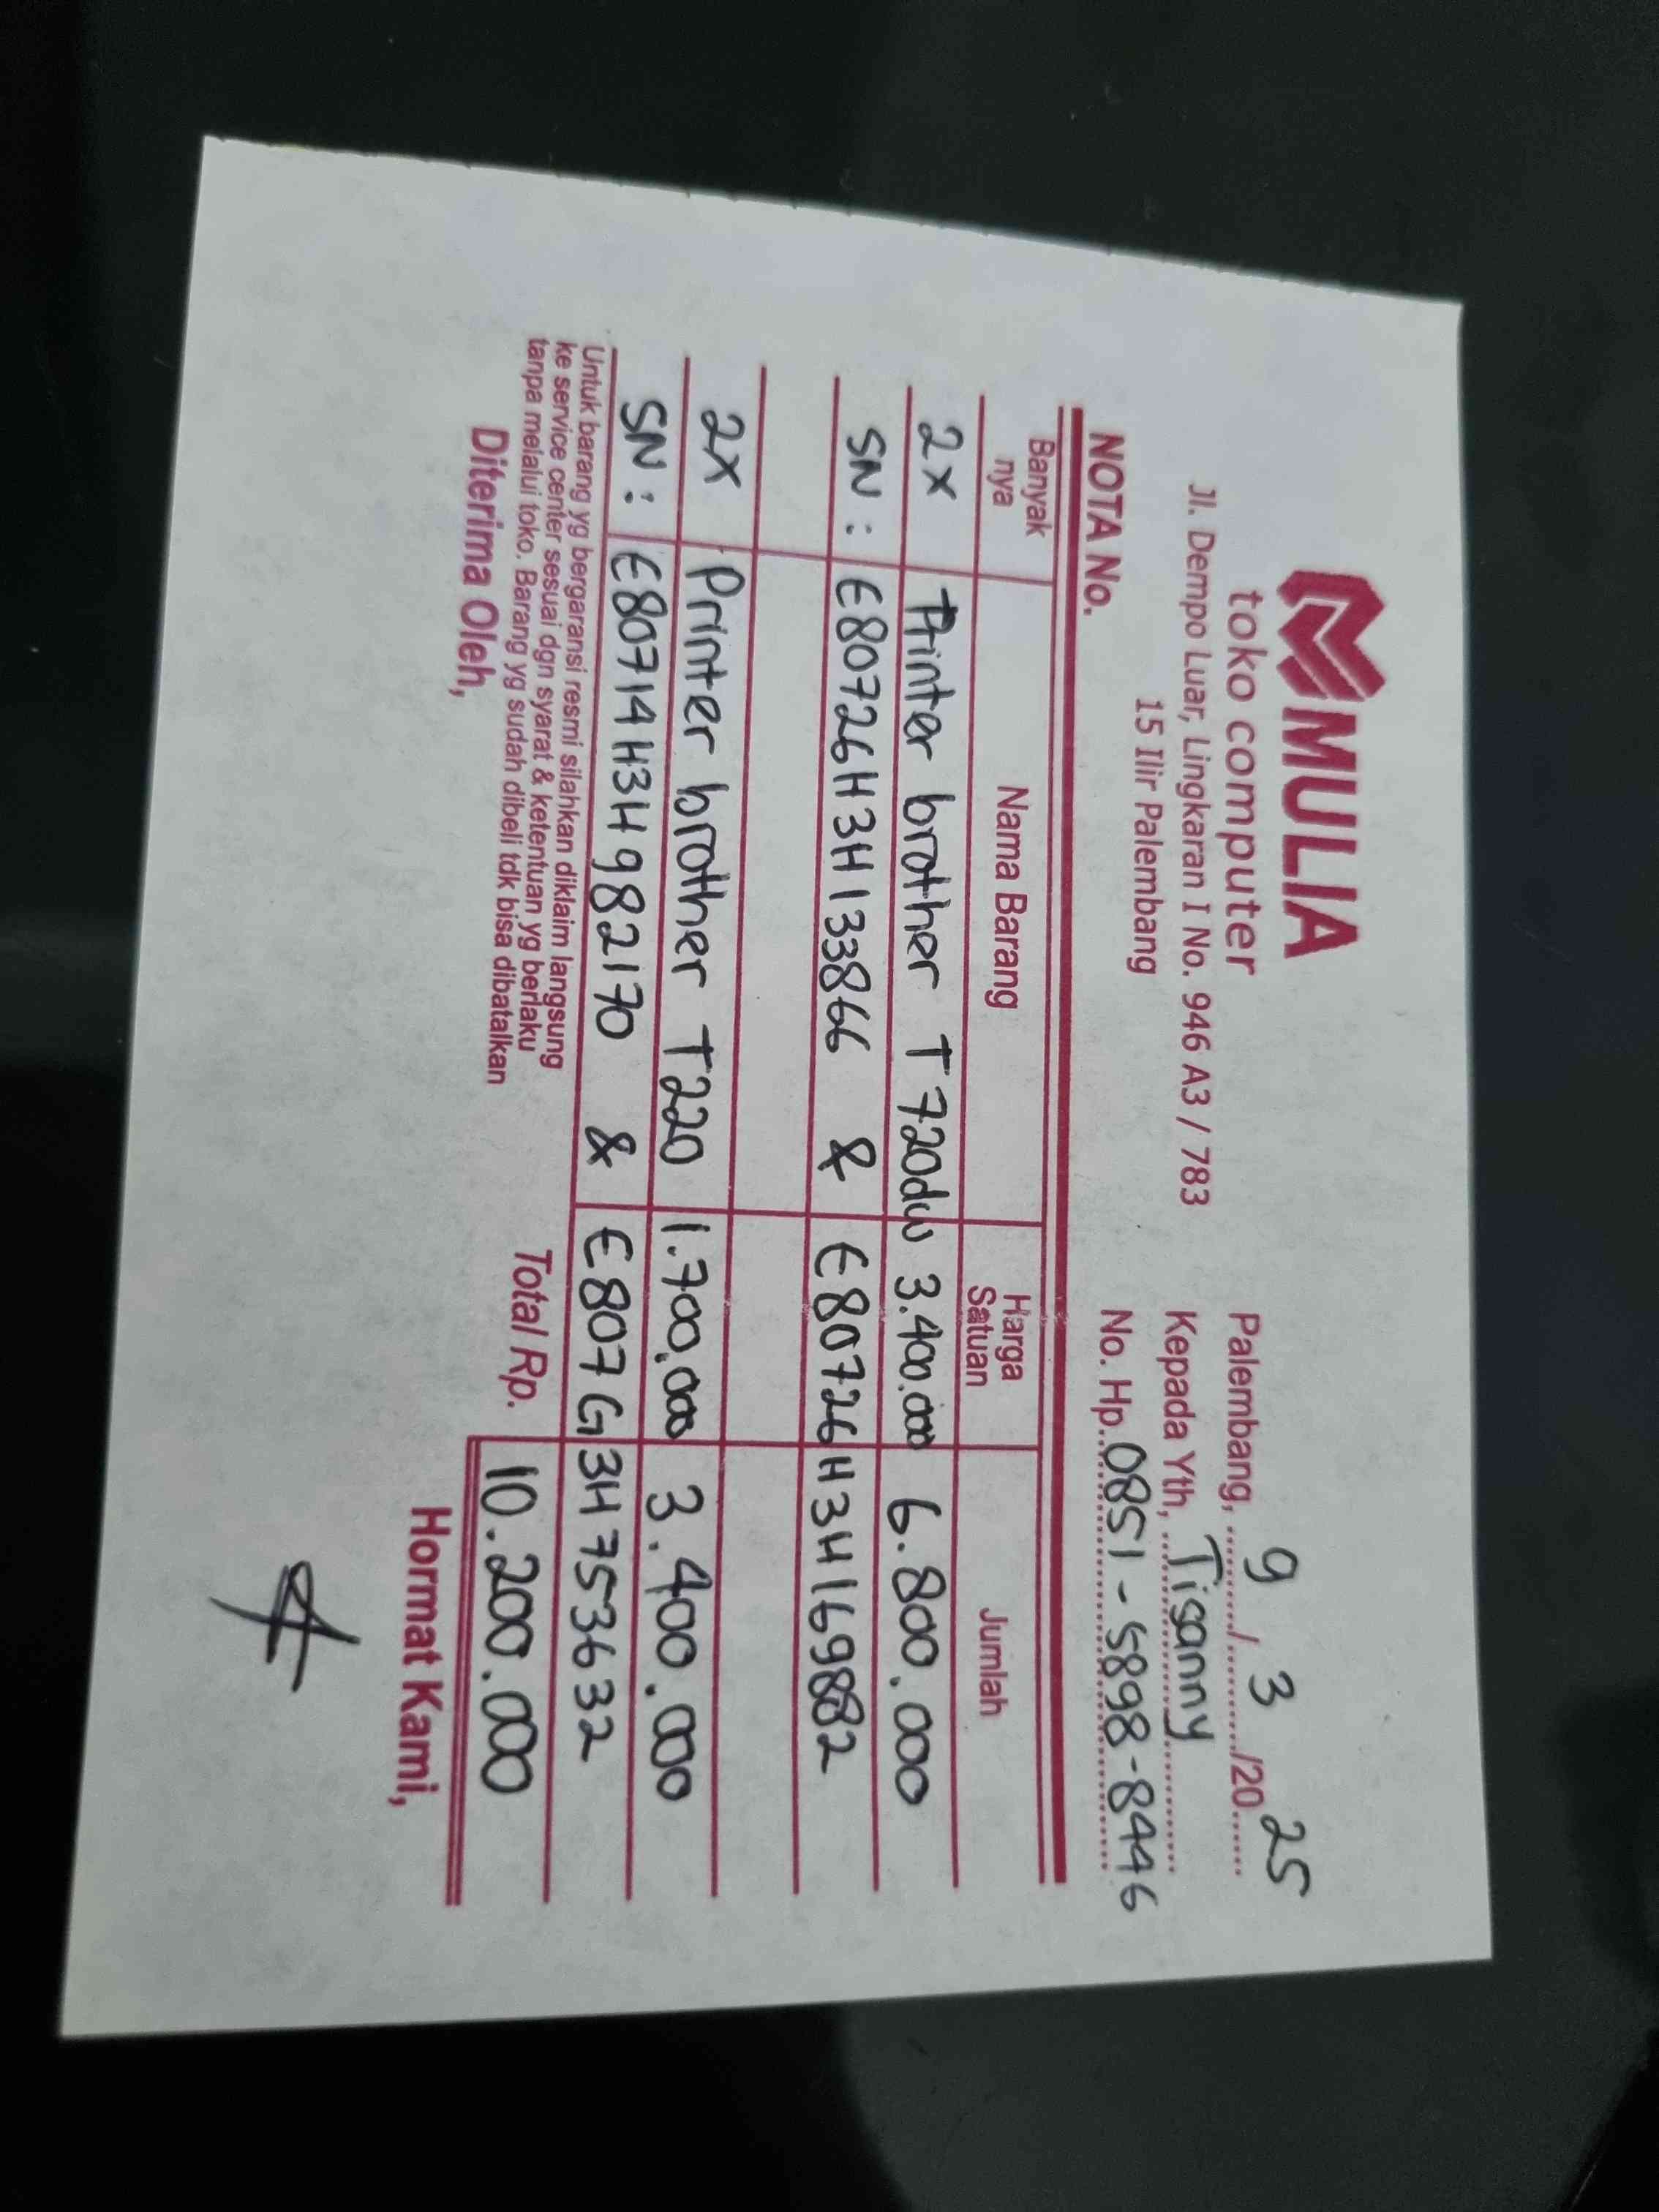 MULIA
toko computer
Jl. Dempo Luar, Lingkaran I No. 946 A3 / 783
15 Ilir Palembang
Palembang, 9 / 3 /20 25
Kepada Yth, Tiganny
No. Hp. 0851-5898-8446
NOTA No.
Banyak nya Nama Barang Harga Satuan Jumlah
2x Printer brother T720dw 3.400.000 6.800.000
SN : E80726H3H133866 & E80726H3H169882
2x Printer brother T220 1.700.000 3.400.000
SN : E80714H3H982170 & E807G3H753632
Untuk barang yg bergaransi resmi silahkan diklaim langsung
ke service center sesuai dgn syarat & ketentuan yg berlaku
tanpa melalui toko. Barang yg sudah dibeli tdk bisa dibatalkan
Total Rp. 10.200.000
Diterima Oleh, Hormat Kami,